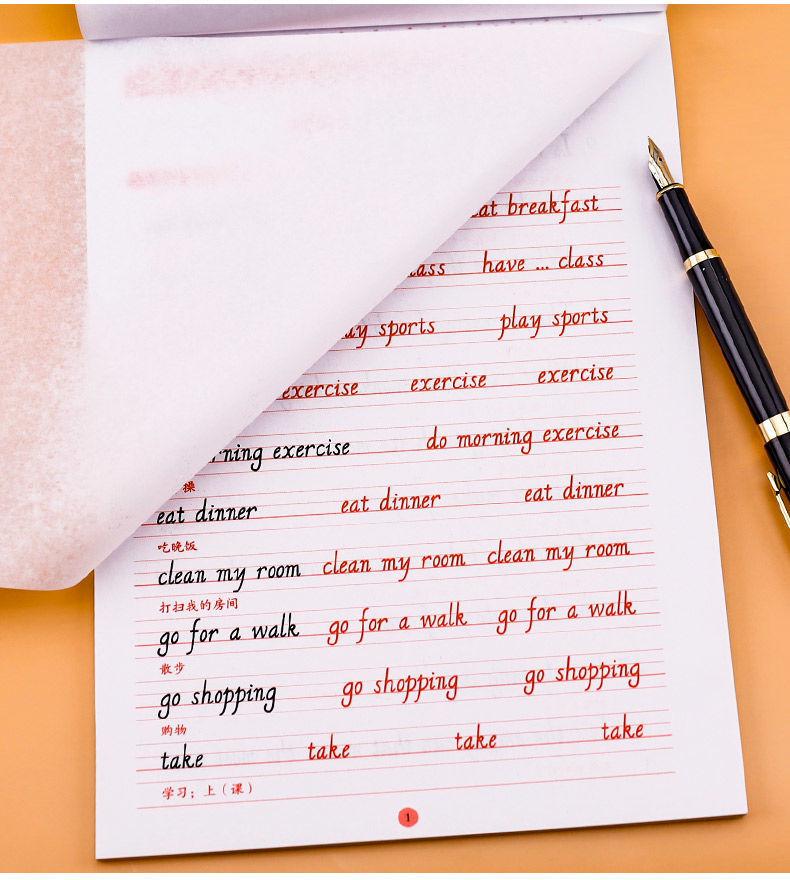 breakfast
have ... class
sports play sports
exercise exercise exercise
exercise do morning exercise
操
eat dinner eat dinner eat dinner
吃晚饭
clean my room clean my room clean my room
打扫我的房间
go for a walk go for a walk go for a walk
散步
go shopping go shopping go shopping
购物
take take take take
学习；上（课）
1